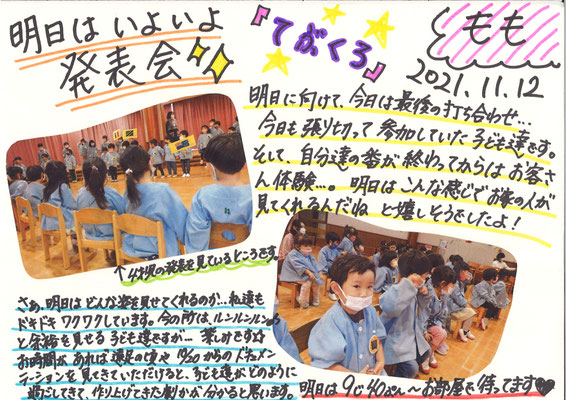 明日は いよいよ
発表会
『てがくろ』
もも
2021.11.12
明日に向けて、今日は最後の打ち合わせ...
今日も張り切って参加していた子ども達です。
そして、自分達の番が終わってからはお客さ
ん体験...。明日はこんな感じでお家の人が
見てくれるんだね と嬉しそうでしたよ!
↑4才児の発表を見ているところです。
さあ、明日はどんな姿を見せてくれるのか...私達も
ドキドキワクワクしています。今の所は、ルンルンルン
と余裕を見せる子ども達ですが... 楽しみです☆
お時間があれば遠足の頃や10/20からのドキュメン
テーションを見てきていただけると、子ども達がどのように
過ごしてきて、作り上げてきた劇かが分かると思います。
明日は9じ40ぷん〜お部屋で待ってます♥